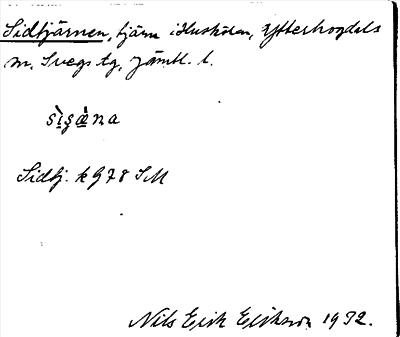 Sidtjärnen, tjärn i Huskölen, Ytterhogdals
sn, Svegs tg, Jämtl. l.
sìʂæ̀na
Sidtj. k G 78 SM
Nils Erik Erikson 1932.